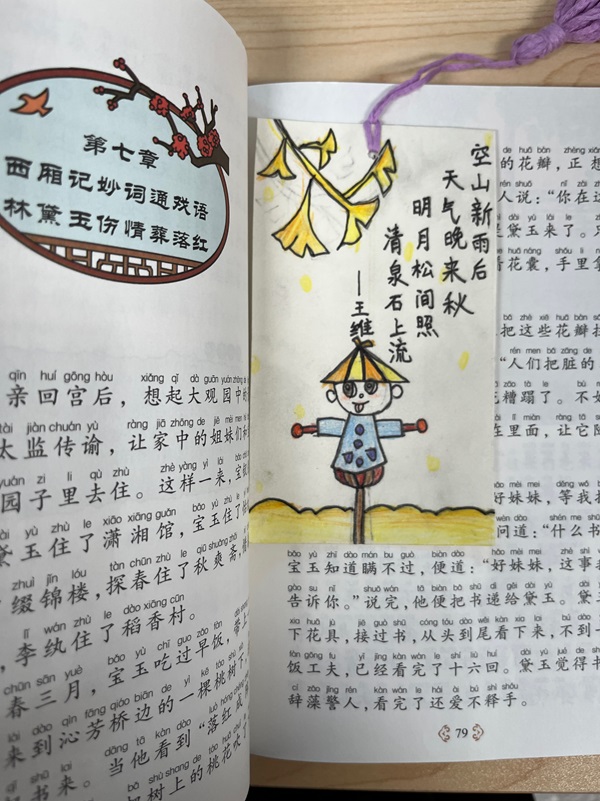 第七章
西厢记妙词通戏语
林黛玉伤情葬落红
qīn huí gōng hòu xiǎng qǐ dà guān yuán zhōng de
亲回宫后，想起大观园中的
tài jiàn chuán yù ràng jiā zhōng de jiě mèi men
太监传谕，让家中的姐妹们和
yuán zi lǐ qù zhù zhè yàng yì lái bǎo
园子里去住。这样一来，宝
dài yù zhù le xiāo xiāng guǎn bǎo yù zhù le
黛玉住了潇湘馆，宝玉住了
zhuì jǐn lóu tàn chūn zhù le qiū shuǎng zhāi
缀锦楼，探春住了秋爽斋，
lǐ wán zhù le dào xiāng cūn
，李纨住了稻香村。
chūn sān yuè bǎo yù chī guo zǎo fàn dài
春三月，宝玉吃过早饭，带上
lái dào qìn fāng qiáo biān de yì kē táo shù xià
来到沁芳桥边的一棵桃树下，
qǐ shū lái dāng tā kàn dào luò hóng
起书来。当他看到“落红
shù shang de táo huā chuī
把树上的桃花吹了
空山新雨后
天气晚来秋
明月松间照
清泉石上流
—王维
de huā bàn zhèng xiǎng
的花瓣，正想
rén shuō nǐ zài zhè
人说：“你在这
shì dài yù lái le
是黛玉来了。只
huā náng shǒu lǐ
着花囊，手里拿
bǎ zhè xiē huā bàn
把这些花瓣扫
rén men bǎ zāng de
“人们把脏的
糟蹋了。不如
zài lǐ miàn ràng tā
在里面，让它随
hǎo mèi mei děng wǒ
好妹妹，等我把
wèn dào shén me shū
问道：“什么书
bǎo yù zhī dào mán bu guò biàn dào hǎo mèi mei zhè shì
宝玉知道瞒不过，便道：“好妹妹，这事我
gào su nǐ shuō wán tā biàn bǎ shū dì gěi dài yù dài
告诉你。”说完，他便把书递给黛玉。黛玉
xià huā jù jiē guò shū cóng tóu dào wěi kàn xià lái bú dào yí
下花具，接过书，从头到尾看下来，不到一
fàn gōng fu yǐ jīng kàn wán le shí liù huí dài yù jué de shū
饭工夫，已经看完了十六回。黛玉觉得书
cí zǎo jǐng rén kàn wán le hái ài bú shì shǒu
辞藻警人，看完了还爱不释手。
79